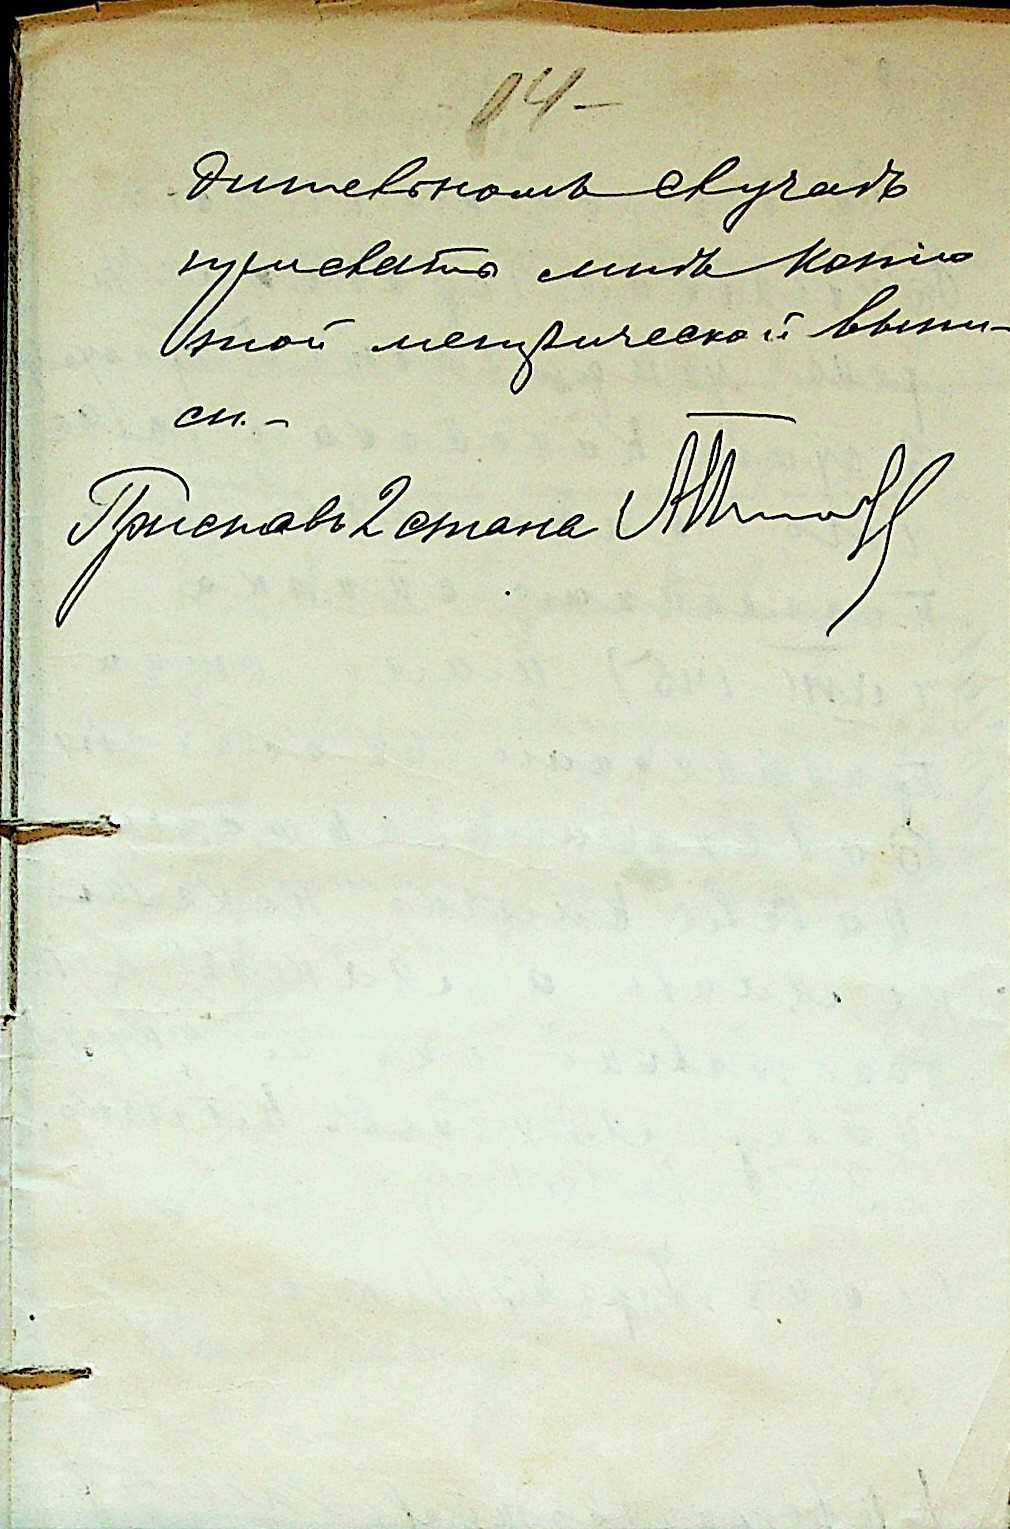 дительномъ случаѣ
прислать мнѣ копію
ной метрической выпи-
си.-
Приставъ 2 стана